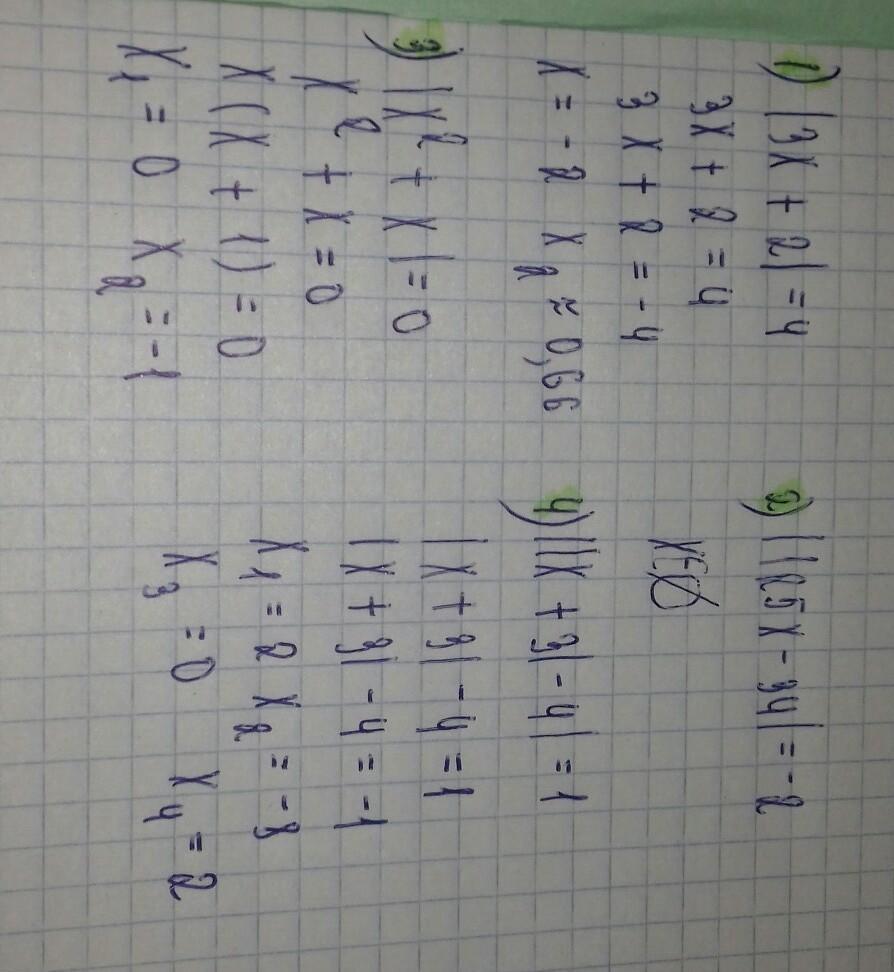 1) |3x + 2| = 4
3x + 2 = 4
3x + 2 = -4
x = -2 x₂ ≈ 0,66
3) |x² + x| = 0
x² + x = 0
x(x + 1) = 0
x₁ = 0 x₂ = -1
2) ||25x - 34| = -2
x∈∅
4) ||x + 3| - 4| = 1
|x + 3| - 4 = 1
|x + 3| - 4 = -1
x₁ = 2 x₂ = -8
x₃ = 0 x₄ = 2